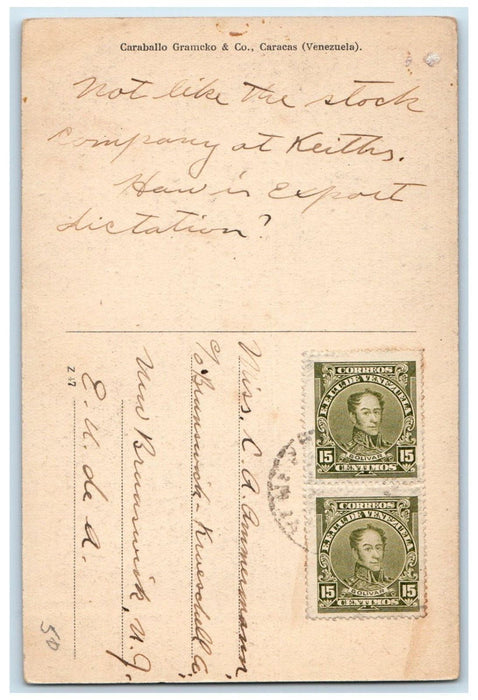 Caraballo Gramcko & Co., Caracas (Venezuela).
Not like the stock
company at Keiths.
How is Export
dictation?
Miss. C. A. Ammermann,
c/o Brunswick-Kroeschell Co.
New Brunswick, N.J.
E. U. de A.
Z 47
50
CORREOS
E.E.U.U. DE VENEZUELA
BOLIVAR
15 15
CENTIMOS
CORREOS
E.E.U.U. DE VENEZUELA
BOLIVAR
15 15
CENTIMOS